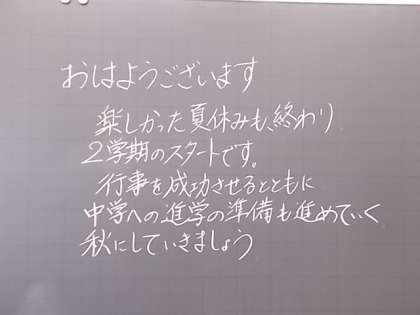 おはようございます
楽しかった夏休みも、終わり
2学期のスタートです。
行事を成功させるとともに
中学への進学の準備も進めていく
秋にしていきましょう